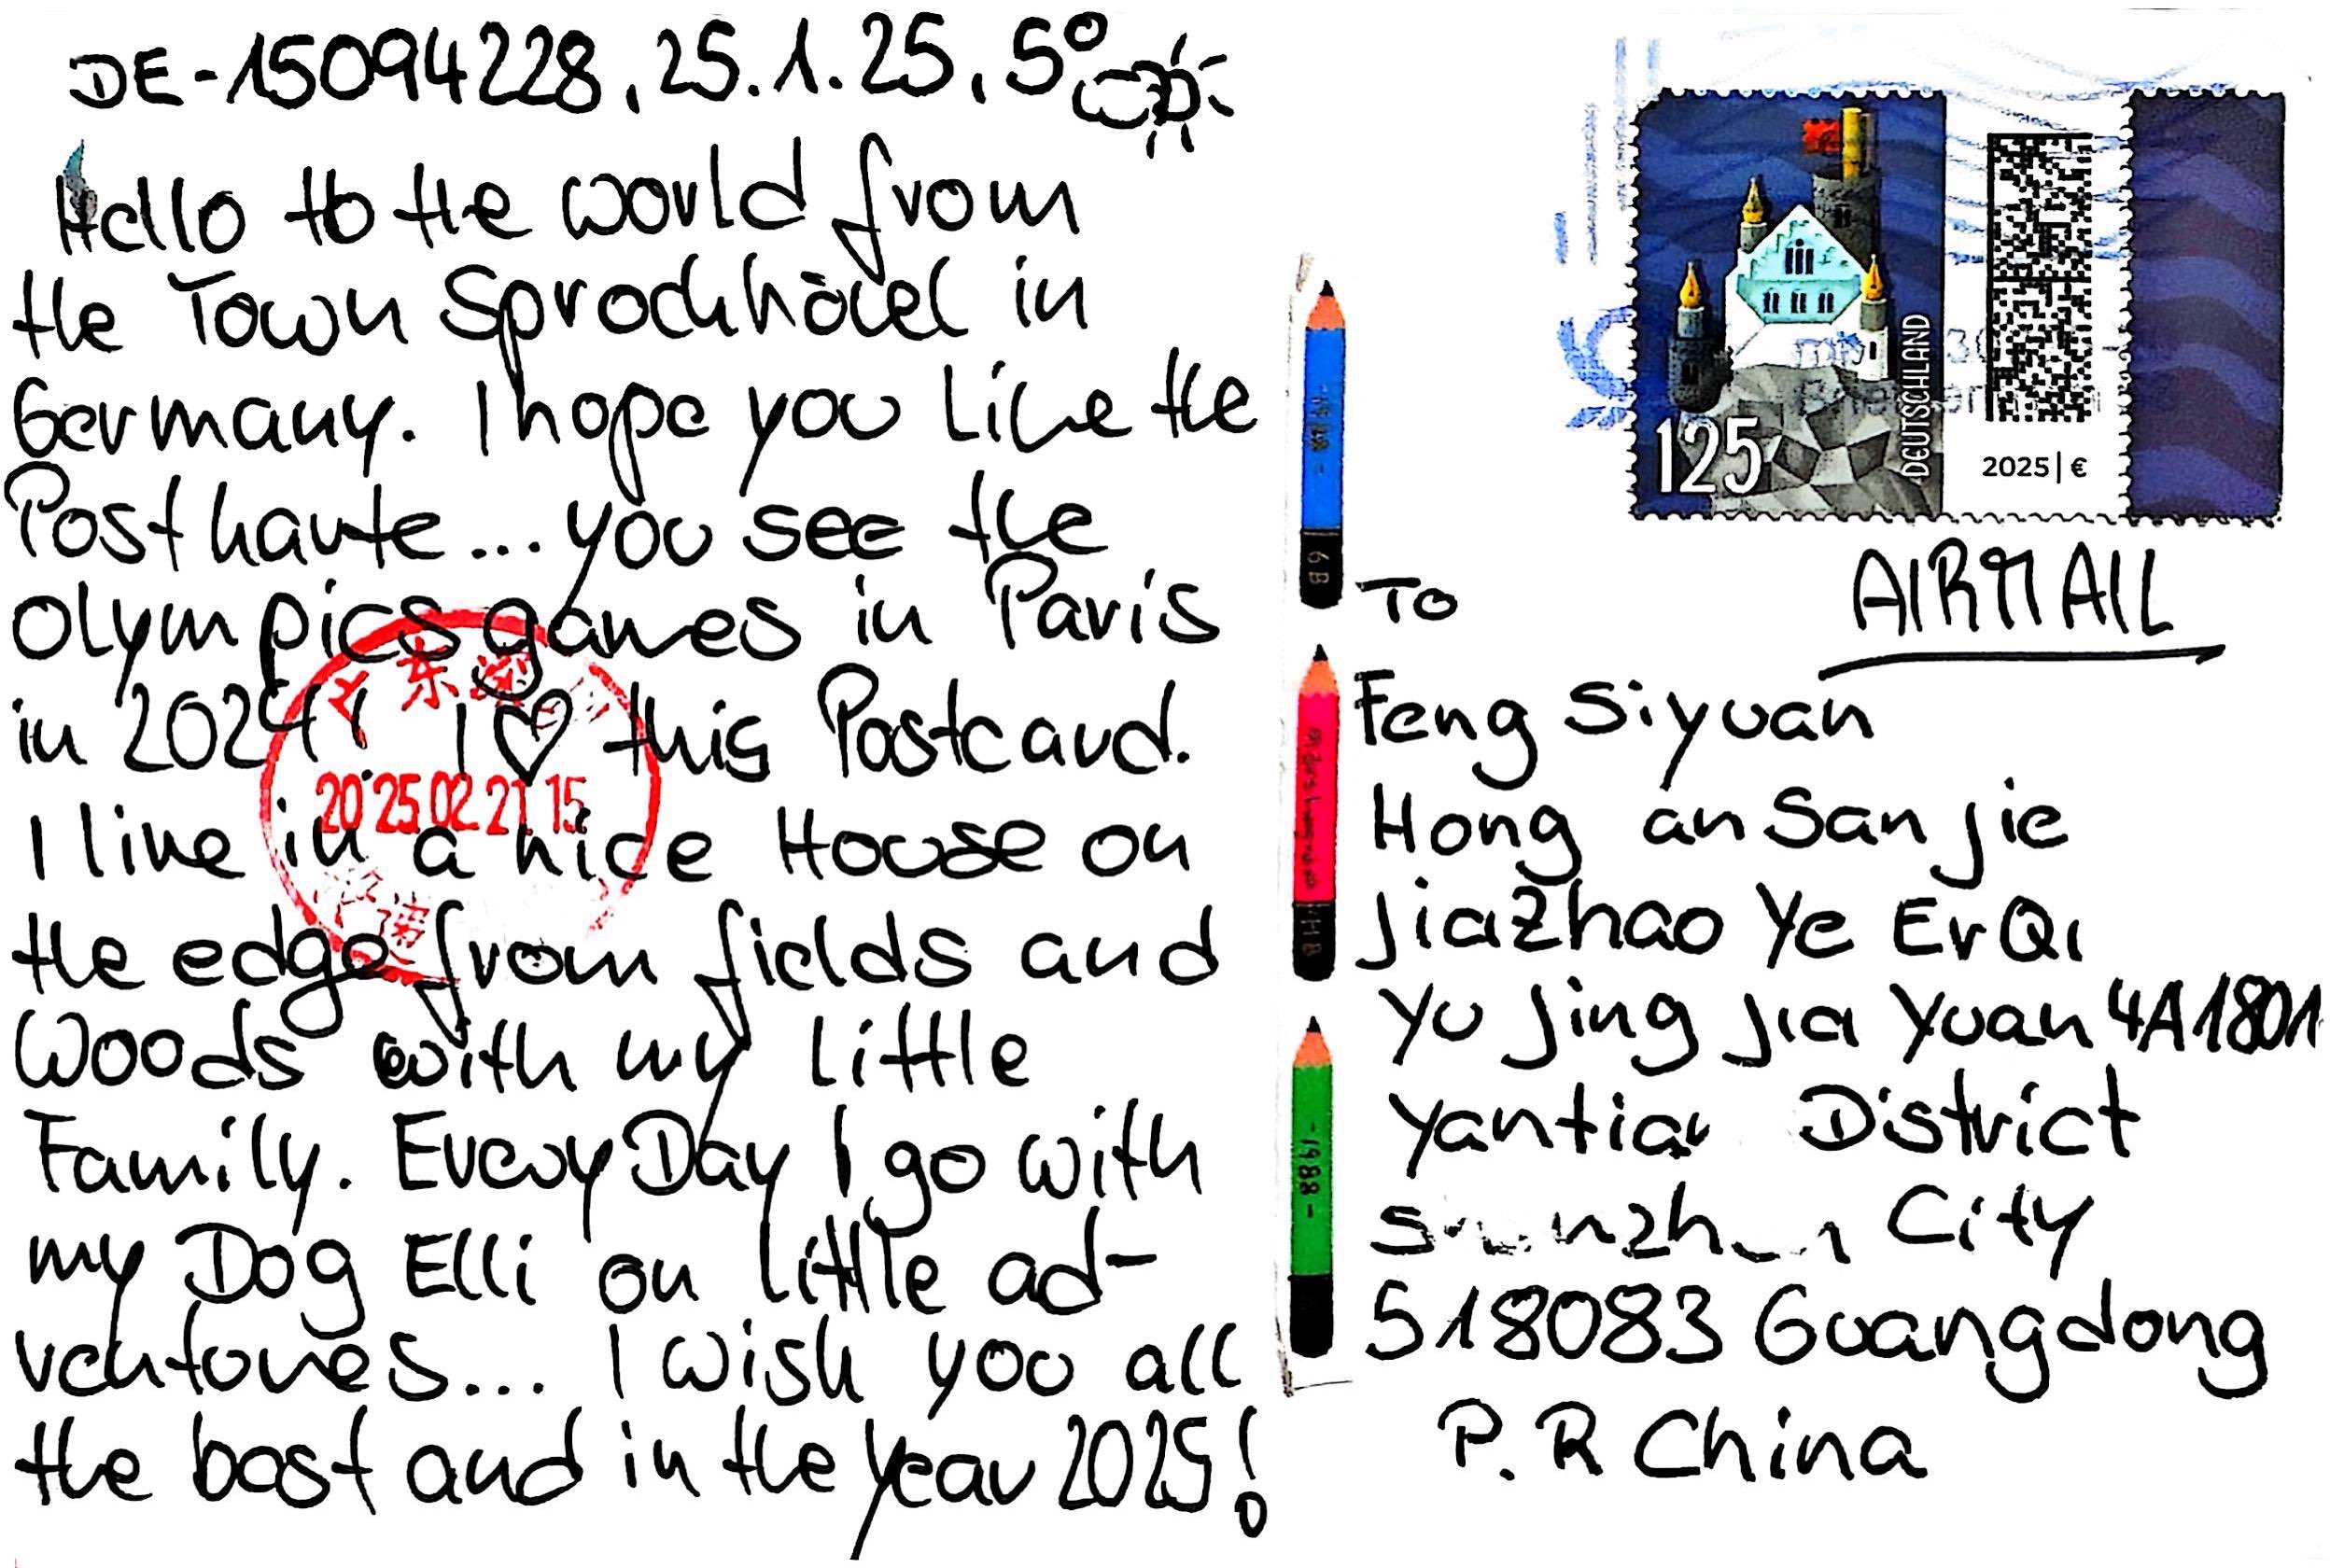 DE-15094228, 25.1.25, 5°
Hello to the world from
the Town Sprockhövel in
Germany. I hope you like the
Postkarte... you see the
olympics games in Paris
in 2024! I ♡ this Postcard.
I live in a nice House on
the edge from fields and
Woods with my little
Family. Every Day I go with
my Dog Elli on little ad-
ventures... I wish you all
the best and in the year 2025!
20 25 02 21 15
6B
- 1988 -
DEUTSCHLAND
125
2025 | €
AIRMAIL
To
Feng Siyuan
Hong an San jie
Jiazhao Ye Er Qi
Yu Jing Jia Yuan 4A1801
Yantian District
Shenzhen City
518083 Guangdong
P.R China